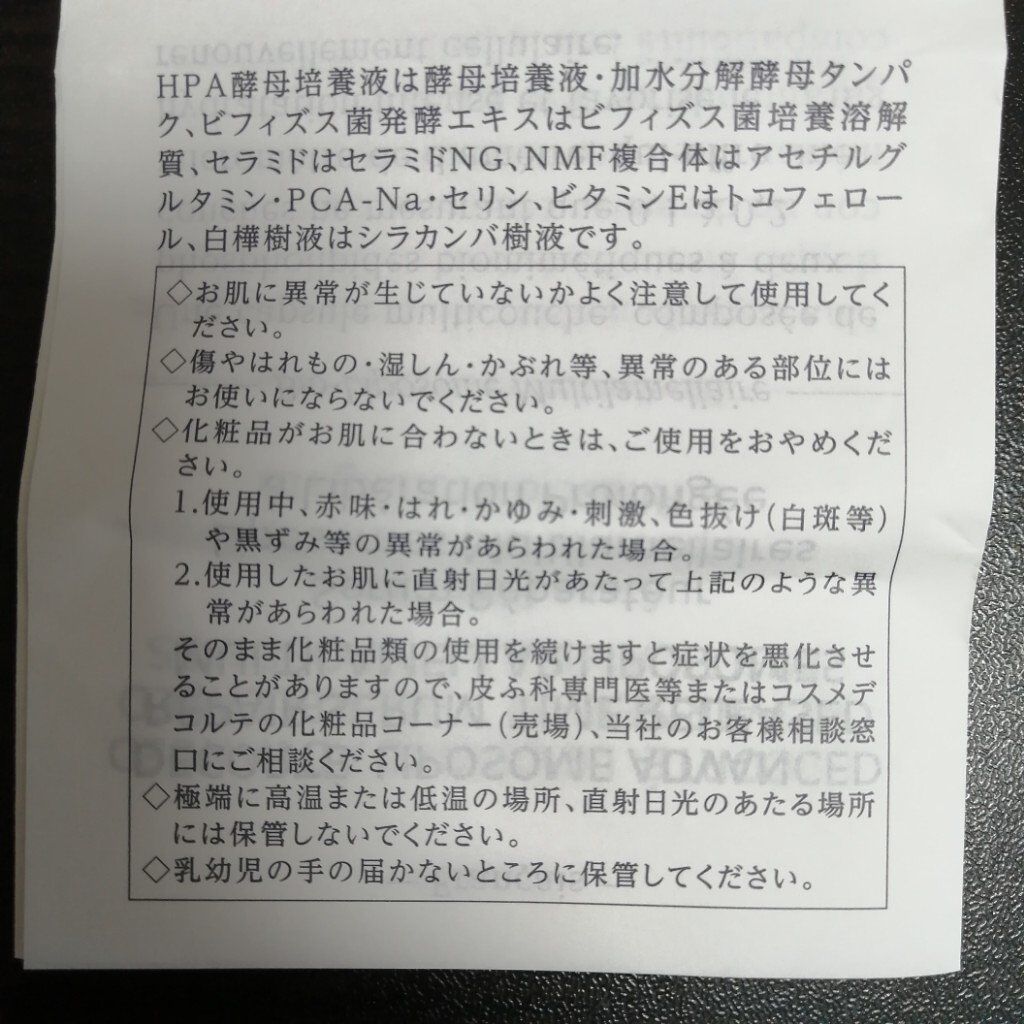 HPA酵母培養液は酵母培養液・加水分解酵母タンパ
ク、ビフィズス菌発酵エキスはビフィズス菌培養溶解
質、セラミドはセラミドNG、NMF複合体はアセチルグ
ルタミン・PCA-Na・セリン、ビタミンEはトコフェロー
ル、白樺樹液はシラカンバ樹液です。
◇お肌に異常が生じていないかよく注意して使用してく
ださい。
◇傷やはれもの・湿しん・かぶれ等、異常のある部位には
お使いにならないでください。
◇化粧品がお肌に合わないときは、ご使用をおやめくだ
さい。
1.使用中、赤味・はれ・かゆみ・刺激、色抜け(白斑等)
や黒ずみ等の異常があらわれた場合。
2.使用したお肌に直射日光があたって上記のような異
常があらわれた場合。
そのまま化粧品類の使用を続けますと症状を悪化させ
ることがありますので、皮ふ科専門医等またはコスメデ
コルテの化粧品コーナー(売場)、当社のお客様相談窓
口にご相談ください。
◇極端に高温または低温の場所、直射日光のあたる場所
には保管しないでください。
◇乳幼児の手の届かないところに保管してください。